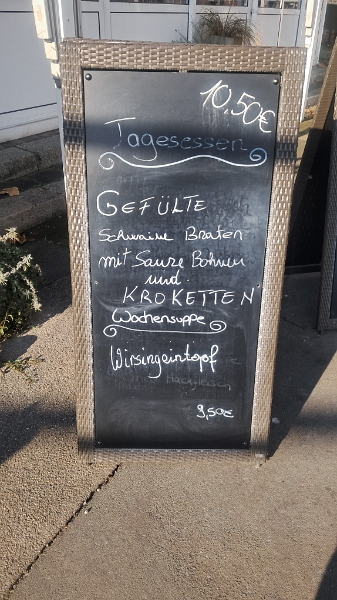 10.50€
Tagesessen
GEFÜLTE
Schwaine Braten
mit Sauze Bohnen
und
KROKETTEN
Wochensuppe
Wirsingeintopf
9,50€